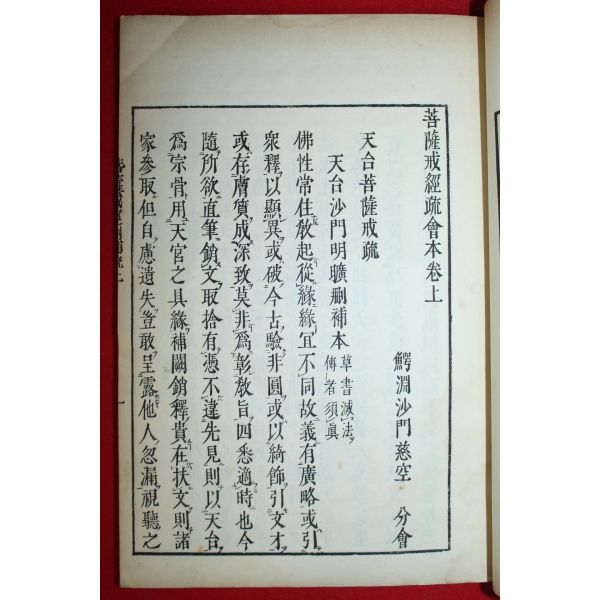 菩薩戒經疏會本卷上
鰐淵沙門慈空 分會
天台菩薩戒疏
天台沙門明曠刪補本 草書滅法
傳者須真
佛性常住敎起從緣緣宜不同故義有廣略或引
衆釋以顯異或破今古驗非圓或以綺飾引文才
或存膚質成深致莫非爲彰敎旨四悉適時也今
隨所欲直筆銷文取捨有憑不違先見則以天台
爲宗骨用天官之具緣補闕銷釋貴在扶文則諸
家參取但自慮遺失豈敢呈露他人忽漏視聽之